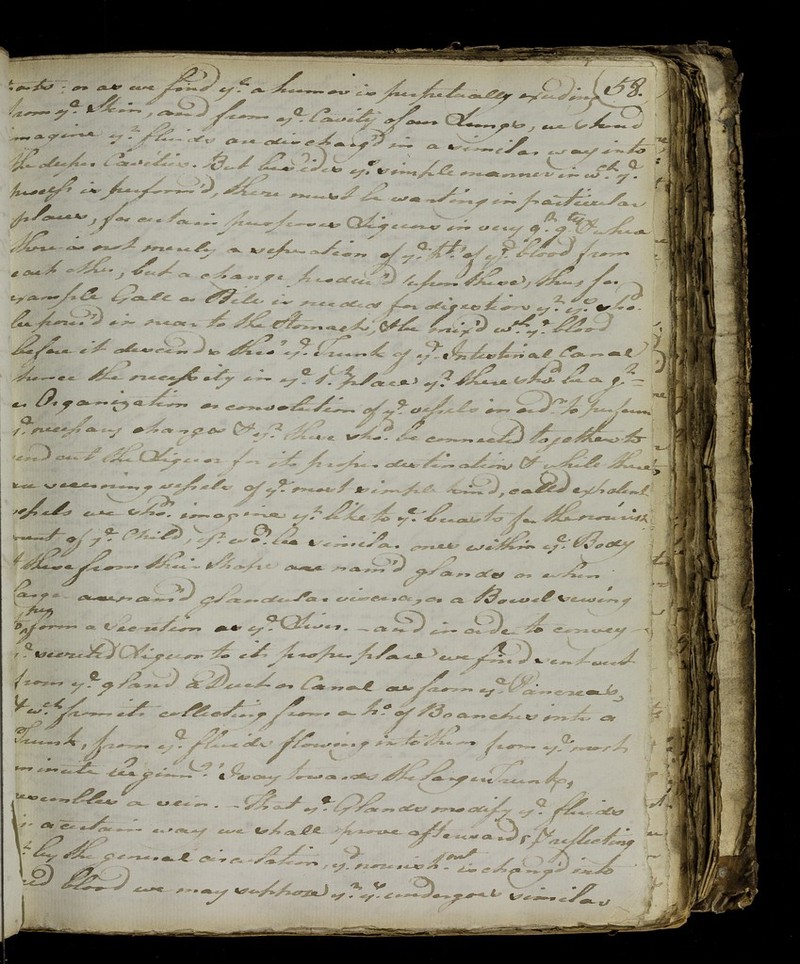 58.
parts: or as we find yt. a humor is perpetually exuding
from ye. Skin, and from ye. Cavity of our Lungs, we shoud
imagine yt. fluids are discharg'd in a similar way into
the deeper Cavities. But besides ys. simple manner in wch. ye.
process is perform'd, there must be wanting in particular
places, for certain purposes Liquors in very gt. qty. & where
there is not merely a separation of ye. pts. of ye. blood from
each other, but a change produc'd upon these, thus for
example Gall or Bile is needed for digestion yt. ys. sho.
be pour'd in near to the Stomach, & be mix'd wth. ye.
before it descends thro' ye. Trunk of ye. Intestinal Canal
hence the necessity in ye. 1st. place yt. there sho'd be a gt=
er Organization or convolution of ye. vessels in ordr. to perform
ye. necessary changes & yt. these sho. be connected together to
send out the Liquor for its proper destination & while there
are secerning vessels of ye. most simple kind, called exhalent
vessels we sho. imagine yt. like to ye. breasts for the nourish
ment of ye. Child, yr. wd. be similar ones within ye. Body
& these from their Shape are nam'd glands or when
large are nam'd glandular viscera, or a Bowel serving
to perform a Secretion as ye. Liver. - and in order to convey
ye. secreted Liquor to its proper place we find sent out
from ye. gland a Duct or Canal as from ye. Pancreas,
& wch. from its collecting from a no. of Branches into a
Trunk, from ye. fluids flowing into them from ye. most
minute beginngs. away towards the larger Trunk,
resembles a vein. - That ye. Glands modify ye. fluids
in a certain way we shall prove afterwards, & reflecting
yt. by the general circulation, ye. nourishmt. is chang'd into
red blood we may suppose yt. ys. undergoes similar